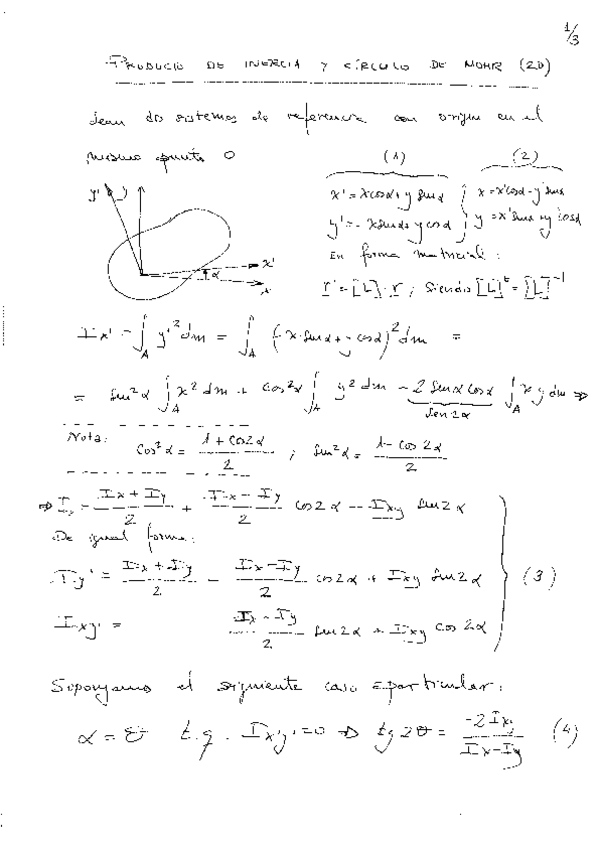 1/3
PRODUCTO DE INERCIA Y CÍRCULO DE MOHR (2D)
Sean dos sistemas de referencia con origen en el
mismo punto O
(1) (2)
y' y
x' = x cosα + y senα } x = x'cosα - y'senα
y' = -x senα + y cosα } y = x'senα + y'cosα
x'
α
x
En forma matricial:
r' = [L]·r ; siendo [L]^t = [L]^-1
Ix' = ∫_A y'^2 dm = ∫_A (-x·senα + y cosα)^2 dm =
= sen^2α ∫_A x^2 dm + cos^2α ∫_A y^2 dm - 2 senα cosα ∫_A x y dm ⇒
sen 2α
Nota: cos^2α = (1 + cos2α)/2 ; sen^2α = (1 - cos 2α)/2
⇒ Ix' = (Ix + Iy)/2 + (Ix - Iy)/2 cos2α - Ixy sen2α
De igual forma:
Iy' = (Ix + Iy)/2 - (Ix - Iy)/2 cos2α + Ixy sen2α } (3)
Ix'y' = (Ix - Iy)/2 sen2α + Ixy cos 2α
Supongamos el siguiente caso particular:
α = θ t.q. Ix'y' = 0 ⇒ tg 2θ = -2Ixy/(Ix - Iy) (4)